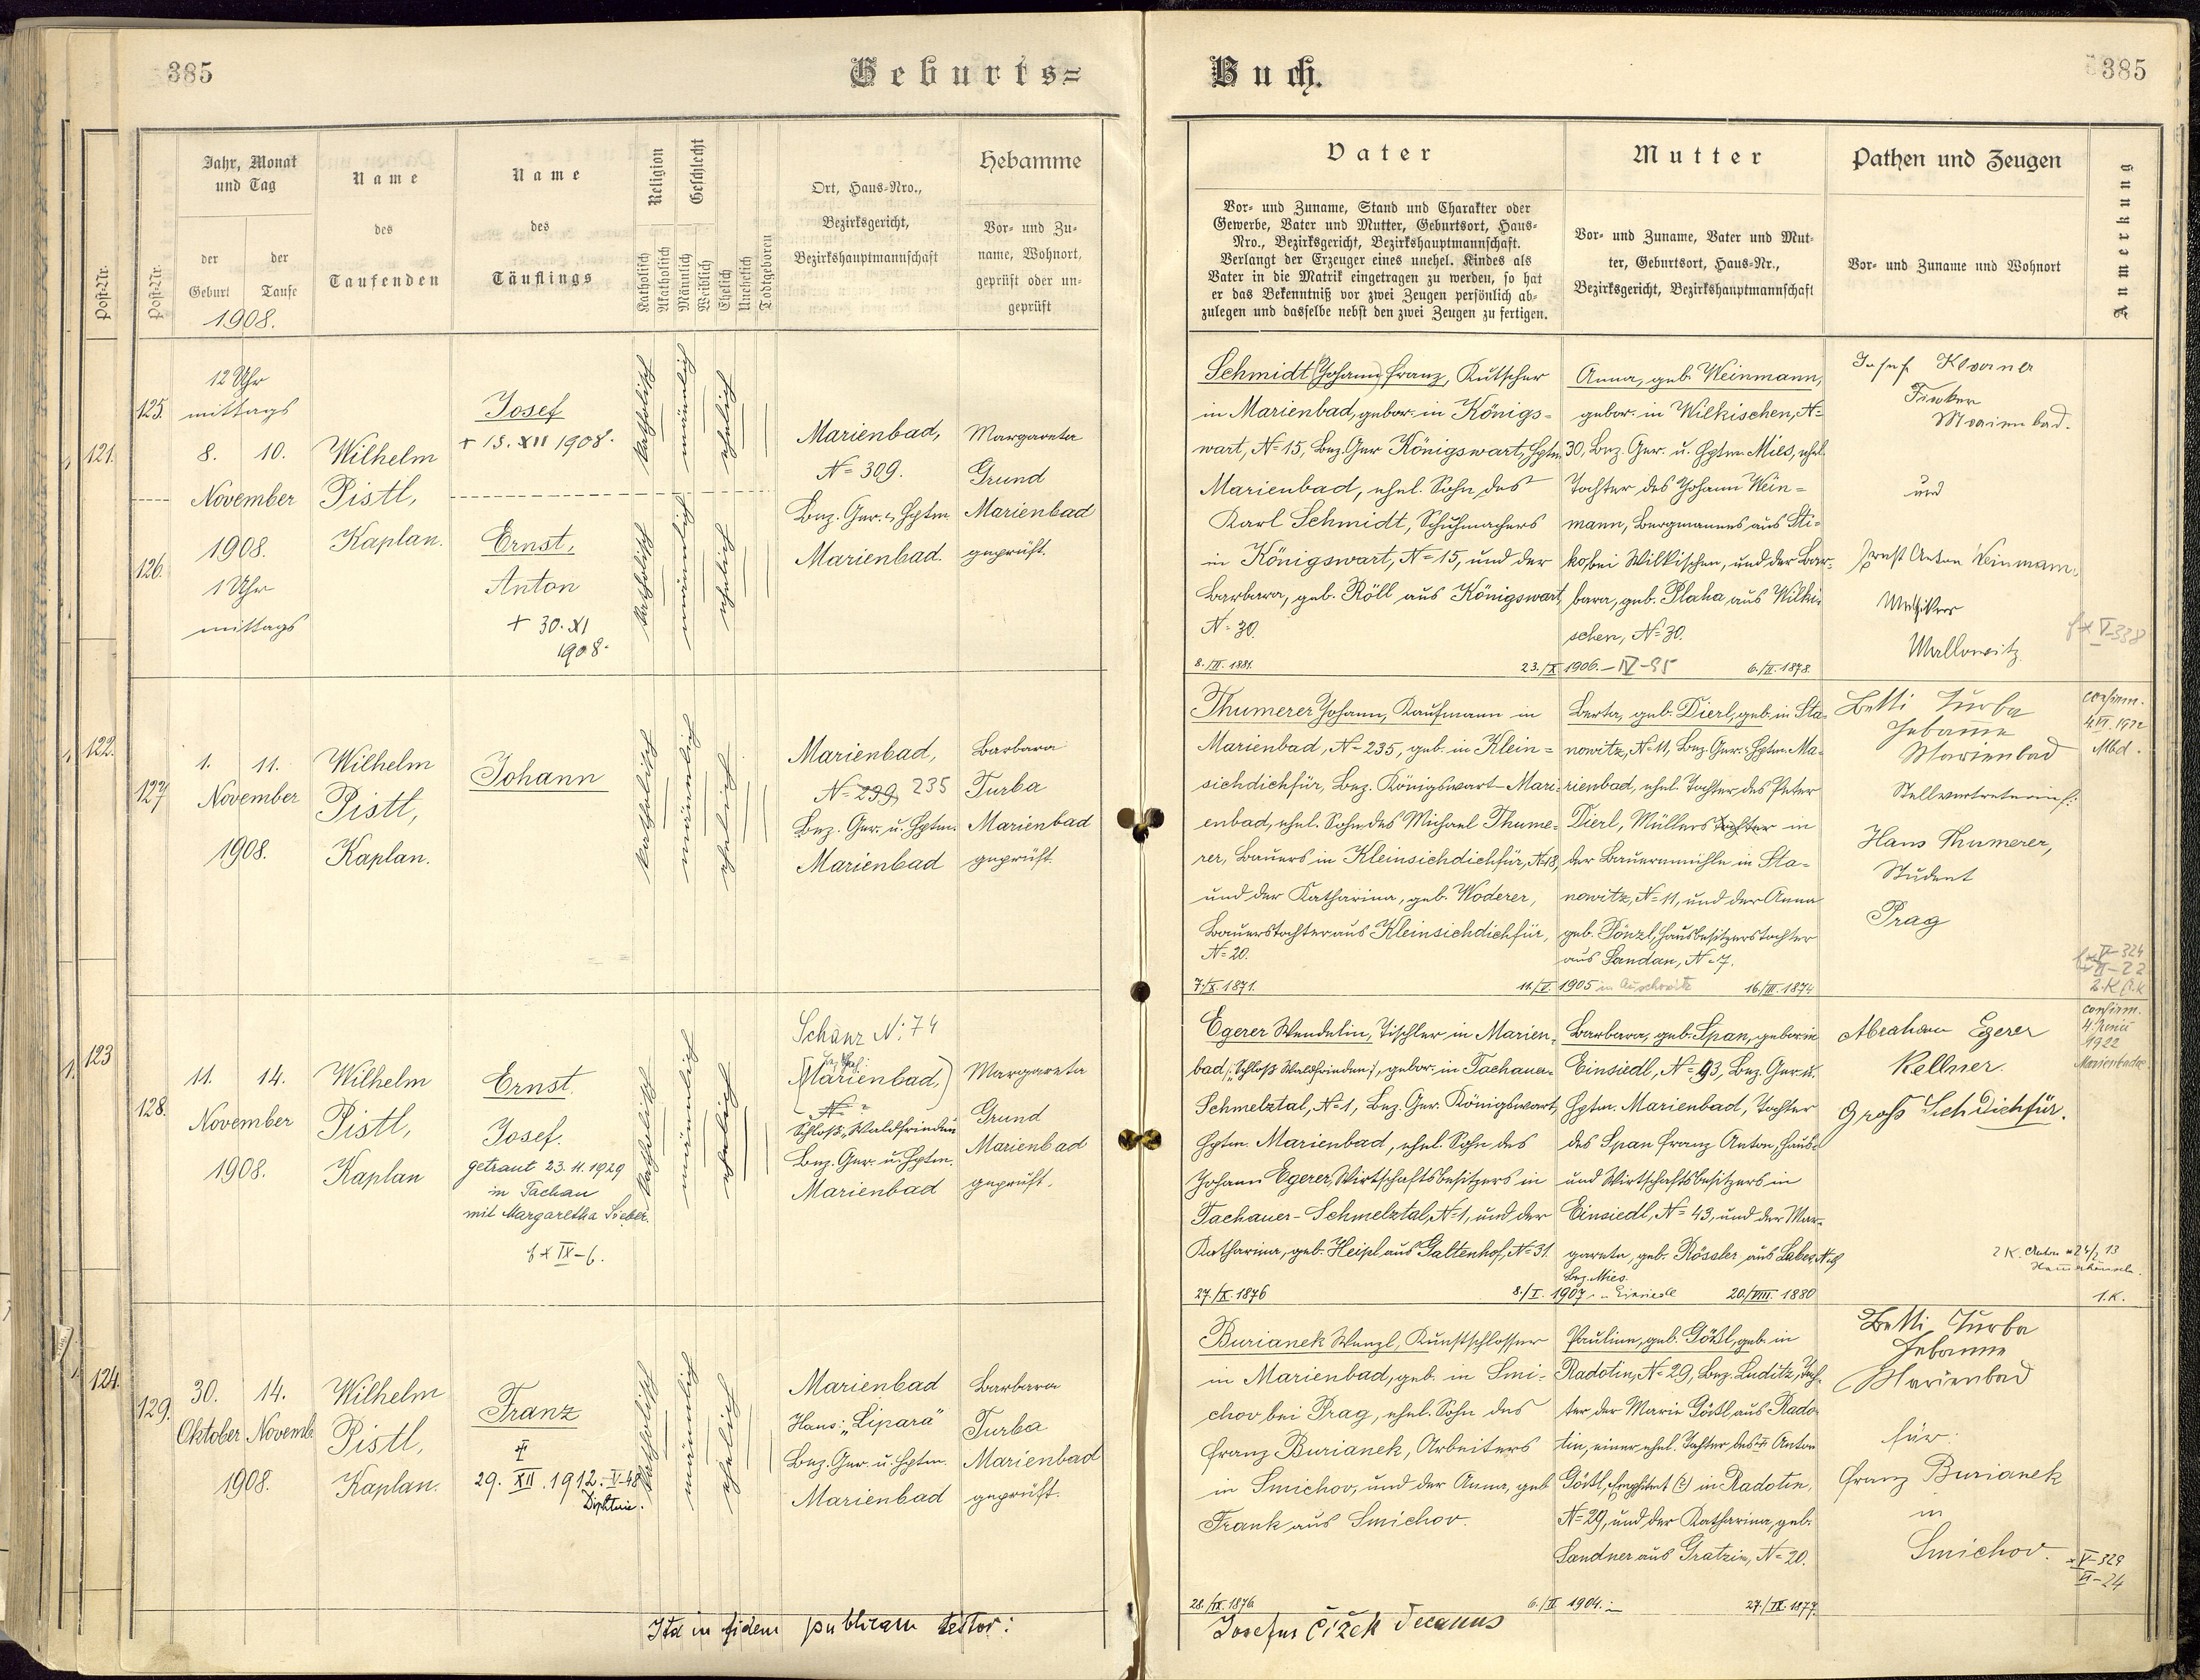 385
Geburts=
Post-Nr.
Post-Nr.
Jahr, Monat
und Tag
der
Geburt
der
Taufe
1908.
Name
des
Taufenden
Name
des
Täuflings
Religion
Katholisch
Akatholisch
Geschlecht
Männlich
Weiblich
Ehelich
Unehelich
Todtgeboren
Ort, Haus-Nro.,
Bezirksgericht,
Bezirkshauptmannschaft
Hebamme
Vor- und Zu-
name, Wohnort,
geprüft oder un-
geprüft
121.
125.
126.
12 Uhr
mittags
8. 10.
November
1908.
1 Uhr
mittags
Wilhelm
Pistl,
Kaplan.
Josef
+ 15. XII 1908.
Ernst,
Anton
+ 30. XI
1908.
katholisch
männlich
ehelich
katholisch
männlich
ehelich
Marienbad,
N= 309.
Bez. Ger. u. Hptm.
Marienbad.
Margareta
Grund
Marienbad
geprüft.
122.
127
1. 11.
November
1908.
Wilhelm
Pistl,
Kaplan.
Johann
katholisch
männlich
ehelich
Marienbad,
N= 239, 235
Bez. Ger. u. Hptm.
Marienbad
Barbara
Turba
Marienbad
geprüft.
123
128.
11. 14.
November
1908.
Wilhelm
Pistl,
Kaplan
Ernst
Josef.
getraut 23. 11. 1929
in Tachau
mit Margaretha Sieber.
IX-6.
katholisch
männlich
ehelich
Schanz N: 74
(Marienbad,)
N=
Schloß, Waldfrieden
Bez. Ger. u. Hptm.
Marienbad
Margareta
Grund
Marienbad
geprüft.
124.
129.
30. 14.
Oktober Novemb.
1908.
Wilhelm
Pistl,
Kaplan.
Franz
+
29. XII. 1912. V-48
Diphterie.
katholisch
männlich
ehelich
Marienbad
Haus: „Lipara"
Bez. Ger. u. Hptm.
Marienbad
Barbara
Turba
Marienbad
geprüft.
Ita in fidem publicam testor:
Buch.
385
Vater
Vor- und Zuname, Stand und Charakter oder
Gewerbe, Vater und Mutter, Geburtsort, Haus-
Nro., Bezirksgericht, Bezirkshauptmannschaft.
Verlangt der Erzeuger eines unehel. Kindes als
Vater in die Matrik eingetragen zu werden, so hat
er das Bekenntniß vor zwei Zeugen persönlich ab-
zulegen und dasselbe nebst den zwei Zeugen zu fertigen.
Mutter
Vor- und Zuname, Vater und Mut-
ter, Geburtsort, Haus-Nr.,
Bezirksgericht, Bezirkshauptmannschaft
Pathen und Zeugen
Vor- und Zuname und Wohnort
Anmerkung
Schmidt Johann Franz, Kutscher
in Marienbad, gebor. in Königs-
wart, N= 15, Bez. Ger. Königswart, Hptm.
Marienbad, ehel. Sohn des
Karl Schmidt, Schuhmachers
in Königswart, N= 15, und der
Barbara, geb. Röll aus Königswart,
N= 30.
8./II. 1881.
Anna, geb. Weinmann,
gebor. in Wilkischen, N=
30, Bez. Ger. u. Hptm. Mies, ehel.
Tochter des Johann Wein-
mann, Bergmannes aus Sti-
ko, bei Wilkischen, und der Bar-
bara, geb. Plaha aus Wilki-
schen, N= 30.
23./X. 1906. – IV-95
6./II. 1878.
Josef
Marienbad.
und
Ernst Anton Weinmann,
V-338
Thumerer Johann, Kaufmann in
Marienbad, N= 235, geb. in Klein-
sichdichfür, Bez. Königswart-Mari-
enbad, ehel. Sohn des Michael Thume-
rer, Bauers in Kleinsichdichfür, N= 18,
und der Katharina, geb. Woderer,
Bauerstochter aus Kleinsichdichfür,
N= 20.
7./X. 1871.
Berta, geb. Dierl, geb. in Sta-
nowitz, N= 11, Bez. Ger. u. Hptm. Ma-
rienbad, ehel. Tochter des Peter
Dierl, Müllers Tochter in
der Bauernmühle in Sta-
nowitz, N= 11, und der Anna
geb. Pönzl, Hausbesitzerstochter
aus Sandau, N= 7.
11./V. 1905 in Auschowitz
16./III. 1874
Betti Turba
Hebamme
Marienbad
Stellvertreterin f.:
Hans Thumerer,
Student
Prag
confirm.
4. VI. 1922
Mbd.
IV-324
VI-22
Egerer Wendelin, Tischler in Marien-
bad (Schloß Waldfrieden), gebor. in Tachauer-
Schmelztal, N= 1, Bez. Ger. Königswart,
Hptm. Marienbad, ehel. Sohn des
Johann Egerer, Wirtschaftsbesitzers in
Tachauer-Schmelztal, N= 1, und der
Katharina, geb. Heipl aus Galtenhof, N= 31.
27./X. 1876
Barbara, geb. Span, gebor. in
Einsiedl, N= 93, Bez. Ger. u.
Hptm. Marienbad, Tochter
des Span Franz Anton, Haus-
und Wirtschaftsbesitzers in
Einsiedl, N= 43, und der Mar-
gareta, geb. Rössler aus Labes,
Bez. Mies.
8./I. 1907 in Einsiedl
20./VIII. 1880
Abraham Egerer
Kellner.
Groß Sichdichfür.
confirm.
4. Juni
1922
Marienbadae
2 K. Anton * 24/2 13
1. K.
Burianek Wenzl, Kunstschlosser
in Marienbad, geb. in Smi-
chov bei Prag, ehel. Sohn des
Franz Burianek, Arbeiters
in Smichov, und der Anna, geb.
Frank aus Smichov.
28./IX. 1876
Pauline, geb. Gößl, geb. in
Radotin, N= 29, Bez. Luditz, Toch-
ter der Marie Gößl aus Rado-
tin, einer ehel. Tochter des + Anton
Gößl, in Radotin,
N= 29, und der Katharina, geb.
Sandner aus Gratzin, N= 20.
6./II. 1904.
27./IX. 1877.
Betti Turba
Hebamme
Marienbad
für:
Franz Burianek
in
Smichov.
V-329
VI-24
Josefus Čížek Decanus